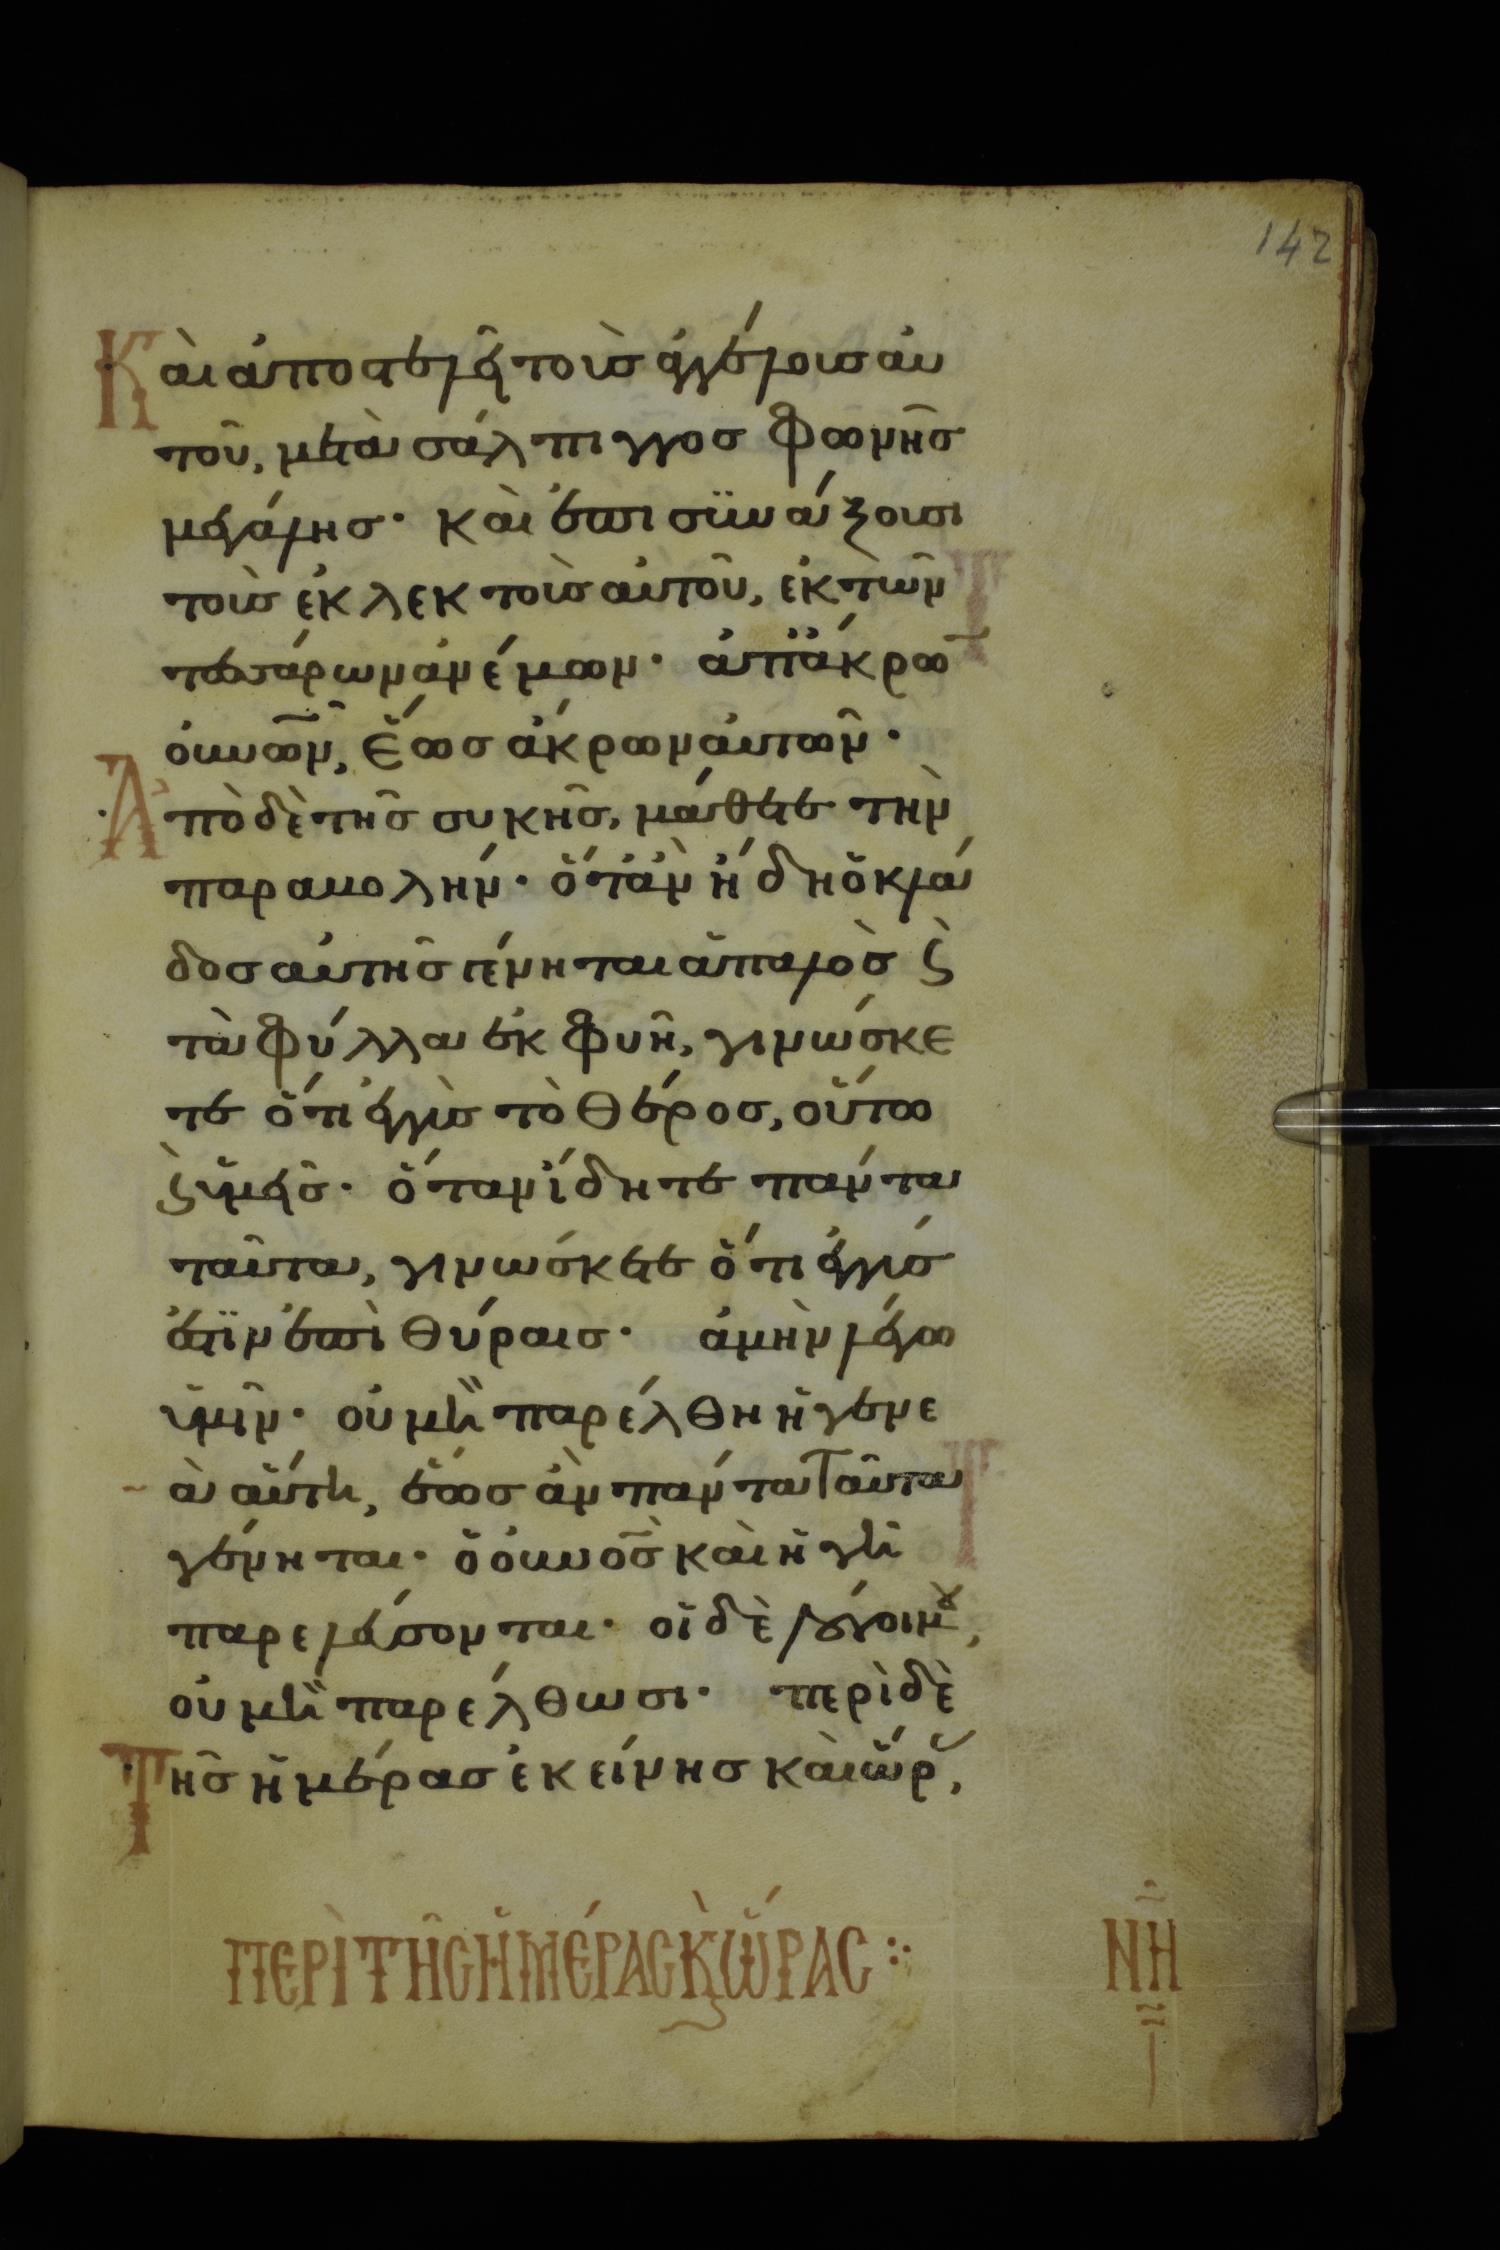 142
Καὶ ἀποστελεῖ τοὺσ ἀγγέλουσ αὐ
τοῦ, μετὰ σάλπιγγοσ φωνῆσ
μεγάλησ· καὶ ἐπισυνάξουσι
τοὺσ ἐκλεκτοὺσ αὐτοῦ, ἐκ τῶν
τεσσάρων ἀνέμων· ἀπ' ἄκρω̅
οὐνω̅ν, ἕωσ ἄκρων αὐτῶν·
Ἀπὸ δὲ τῆσ συκῆσ, μάθετε τὴν
παραβολήν· ὅταν ἤδη ὁ κλά
δοσ αὐτῆσ γένηται ἁπαλὸσ ϗ
τὰ φύλλα ἐκφυῆ, γινώσκε
τε ὅτι ἐγγὺσ τὸ θέροσ, οὕτω
ϗ ὑμεῖσ· ὅταν ἴδητε πάντα
ταῦτα, γινώσκετε ὅτι ἐγγύσ
ἐστϊν ἐπὶ θύραισ· ἀμὴν λέγω
ὑμῖν· οὐ μὴ παρέλθη ἡ γενε
ὰ αὕτη, ἕωσ ἂν πάντα ταῦτα
γένηται· ὁ οὐνο̅σ καὶ ἡ γῆ
παρελεύσονται· οἱ δὲ λόγοι μου,
οὐ μὴ παρέλθωσι· περὶ δὲ
Τῆσ ἡμέρασ ἐκείνησ καὶ ὥρ,
ΠΕΡῚ ΤΗ͂C ἩΜΈΡΑC Ϗ ὭΡΑC
ΝΗ